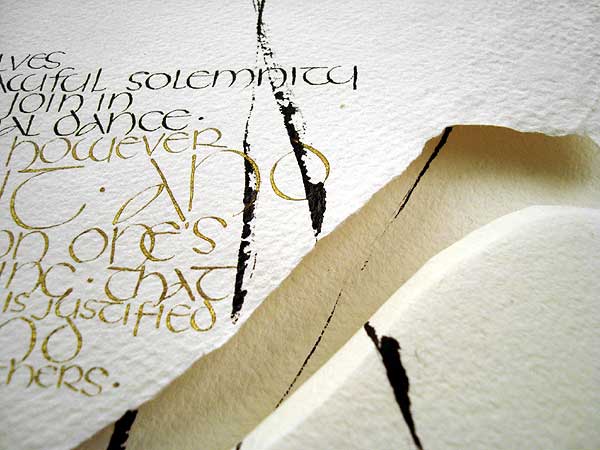 lves
ceful solemnity
join in
al dance.
however
it · and
on one's
that
is justified
nd
hers.